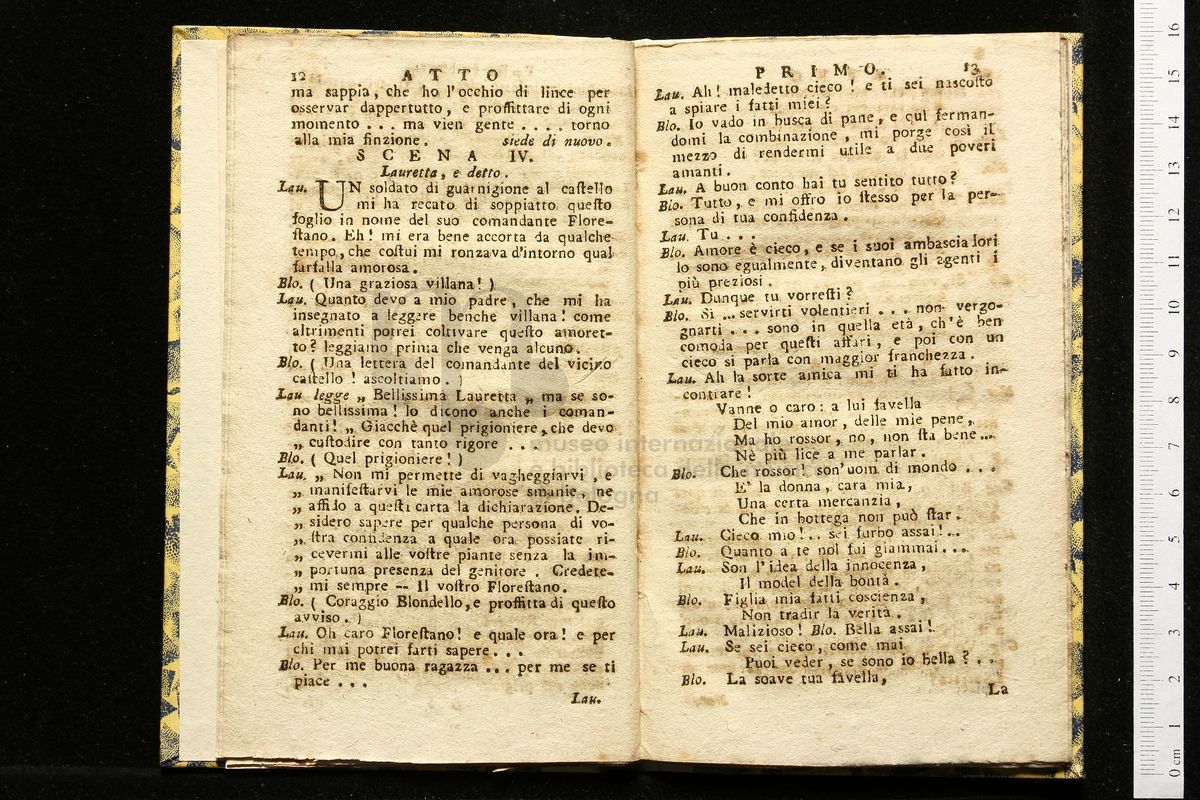 12 ATTO
ma sappia, che ho l'occhio di lince per
osservar dappertutto, e proffittare di ogni
momento ... ma vien gente .... torno
alla mia finzione. siede di nuovo.
SCENA IV.
Lauretta, e detto.
Lau. UN soldato di guarnigione al castello
mi ha recato di soppiatto questo
foglio in nome del suo comandante Flore-
stano. Eh! mi era bene accorta da qualche
tempo, che costui mi ronzava d'intorno qual
farfalla amorosa.
Blo. ( Una graziosa villana! )
Lau. Quanto devo a mio padre, che mi ha
insegnato a leggere benche villana! come
altrimenti potrei coltivare questo amoret-
to? leggiamo prima che venga alcuno.
Blo. ( Una lettera del comandante del vicino
castello ! ascoltiamo. )
Lau legge „ Bellissima Lauretta „ ma se so-
no bellissima! lo dicono anche i coman-
danti! „ Giacchè quel prigioniere, che devo
„ custodire con tanto rigore . .
Blo. ( Quel prigioniere! )
Lau. „ Non mi permette di vagheggiarvi, e
„ manifestarvi le mie amorose smanie, ne
„ affido a questi carta la dichiarazione. De-
„ sidero sapere per qualche persona di vo-
„ stra confidenza a quale ora possiate ri-
„ cevermi alle vostre piante senza la im-
„ portuna presenza del genitore . Credete-
„ mi sempre -- Il vostro Florestano.
Blo. ( Coraggio Blondello, e proffitta di questo
avviso. )
Lau. Oh caro Florestano! e quale ora! e per
chi mai potrei farti sapere...
Blo. Per me buona ragazza ... per me se ti
piace ...
Lau.
PRIMO. 13
Lau. Ah! maledetto cieco ! e ti sei nascosto
a spiare i fatti miei?
Blo. Io vado in busca di pane, e quì ferman-
domi la combinazione, mi porge così il
mezzo di rendermi utile a due poveri
amanti.
Lau. A buon conto hai tu sentito tutto?
Blo. Tutto, e mi offro io stesso per la per-
sona di tua confidenza.
Lau. Tu ...
Blo. Amore è cieco, e se i suoi ambasciatori
lo sono egualmente, diventano gli agenti i
più preziosi.
Lau. Dunque tu vorresti?
Blo. Si ... servirti volentieri ... non vergo-
gnarti ... sono in quella età, ch'è ben
comoda per questi affari, e poi con un
cieco si parla con maggior franchezza.
Lau. Ah la sorte amica mi ti ha fatto in-
contrare!
Vanne o caro: a lui favella
Del mio amor, delle mie pene,
Ma ho rossor, no, non sta bene...
Nè più lice a me parlar.
Blo. Che rossor! son'uom di mondo ...
E' la donna, cara mia,
Una certa mercanzia,
Che in bottega non può star.
Lau. Cieco mio!.. sei furbo assai!..
Blo. Quanto a te nol fui giammai...
Lau. Son l'idea della innocenza,
Il model della bontà.
Blo. Figlia mia fatti coscienza,
Non tradir la verità.
Lau. Malizioso! Blo. Bella assai!
Lau. Se sei cieco, come mai
Puoi veder, se sono io bella? ..
Blo. La soave tua favella,
La
museo internazionale
e biblioteca della musica
di Bologna
0 cm 1 2 3 4 5 6 7 8 9 10 11 12 13 14 15 16